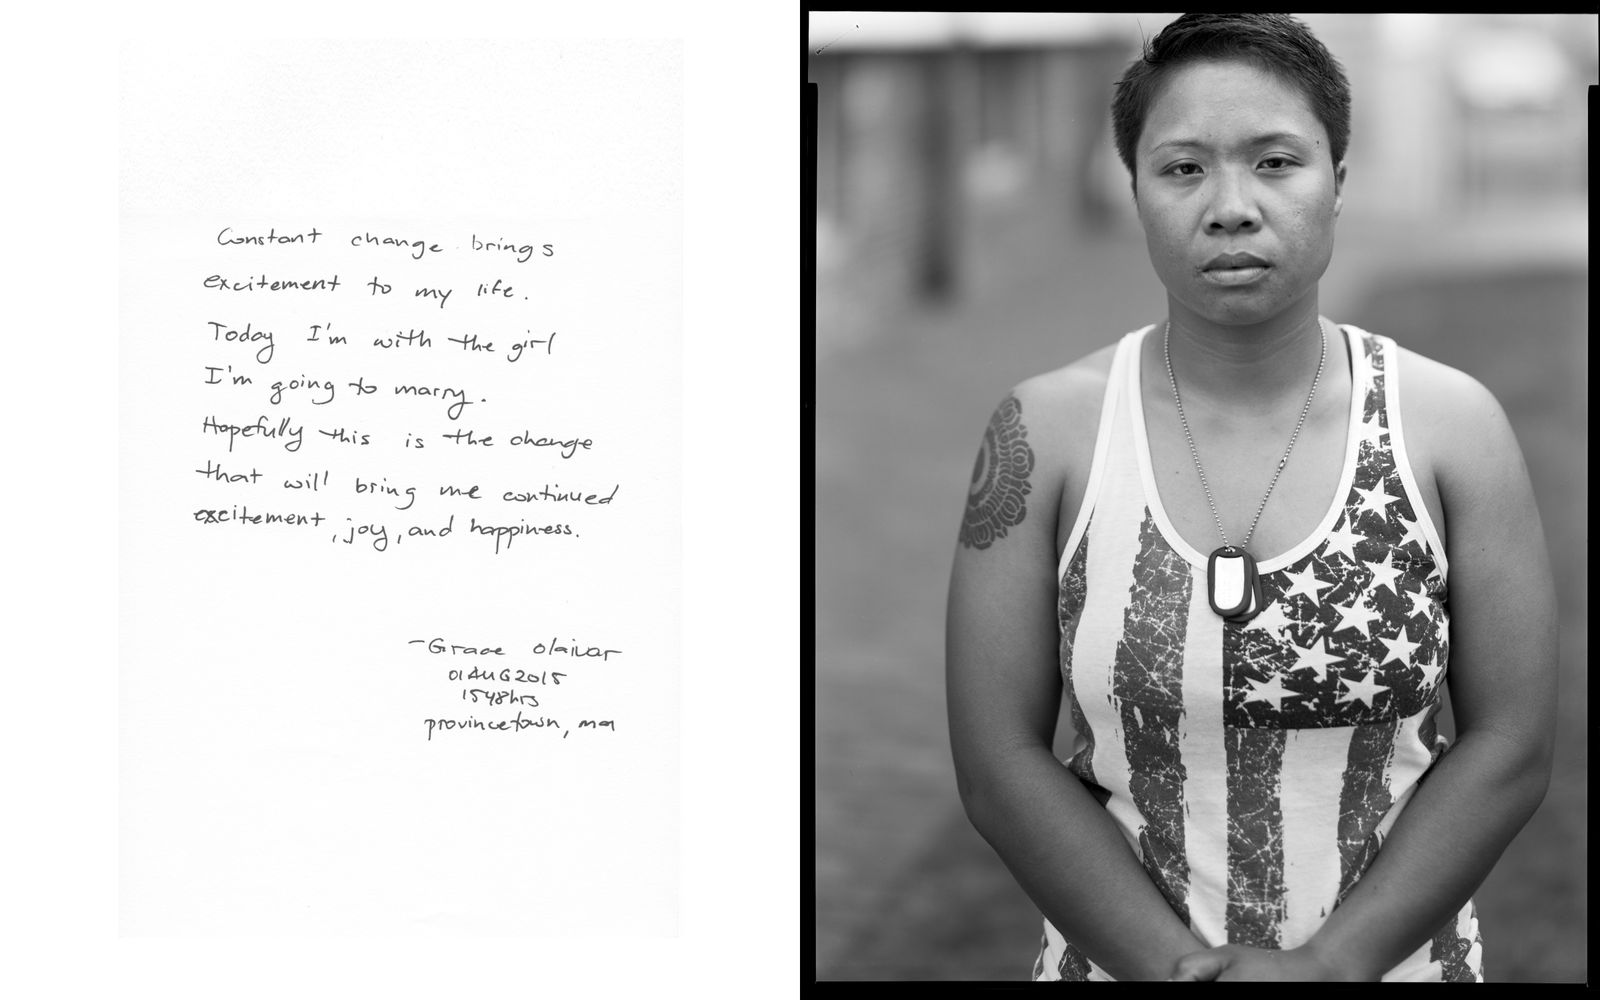 Constant change brings
excitement to my life.
Today I'm with the girl
I'm going to marry.
Hopefully this is the change
that will bring me continued
excitement, joy, and happiness.
-Grace Olaivar
01AUG2015
1548hrs
provincetown, ma